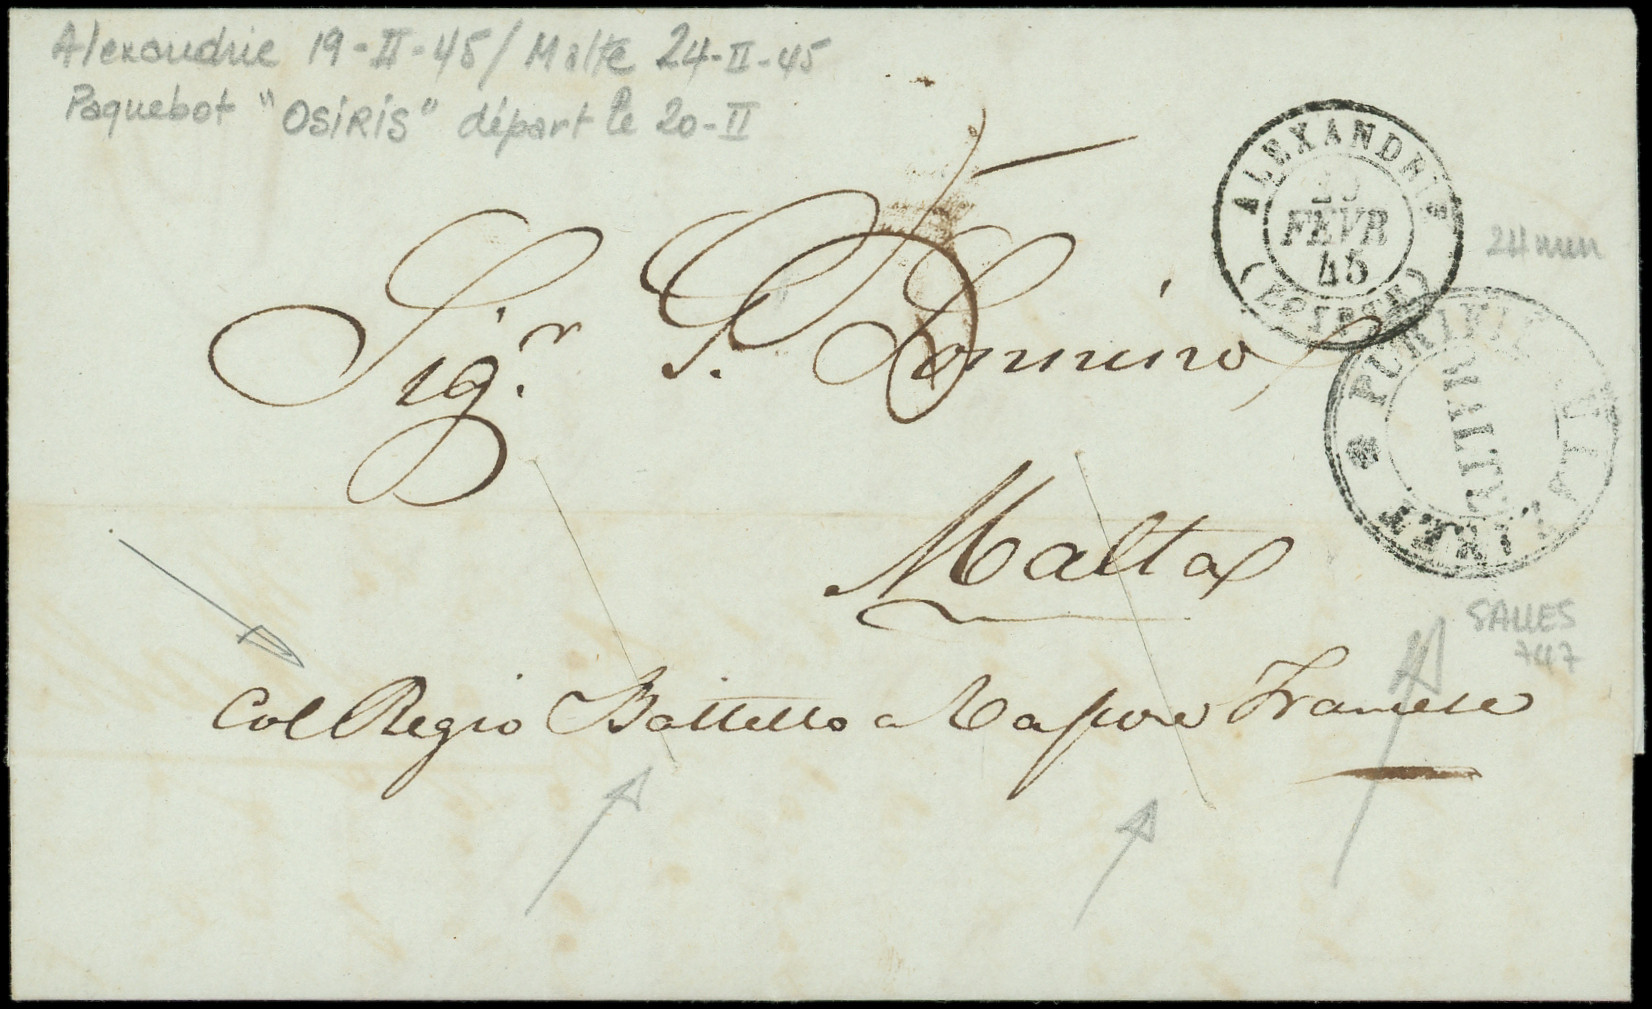 Alexandrie 19-II-45 / Malte 24-II-45
Paquebot "OSIRIS" départ le 20-II
ALEXANDRIE
20
FEVR
45
(EGYPTE)
24 mm
Sig.r G.
Malta
PURIFIE AU LAZARET
MALTA
SALLES
747
Col Regio Battello a Vapore Francese